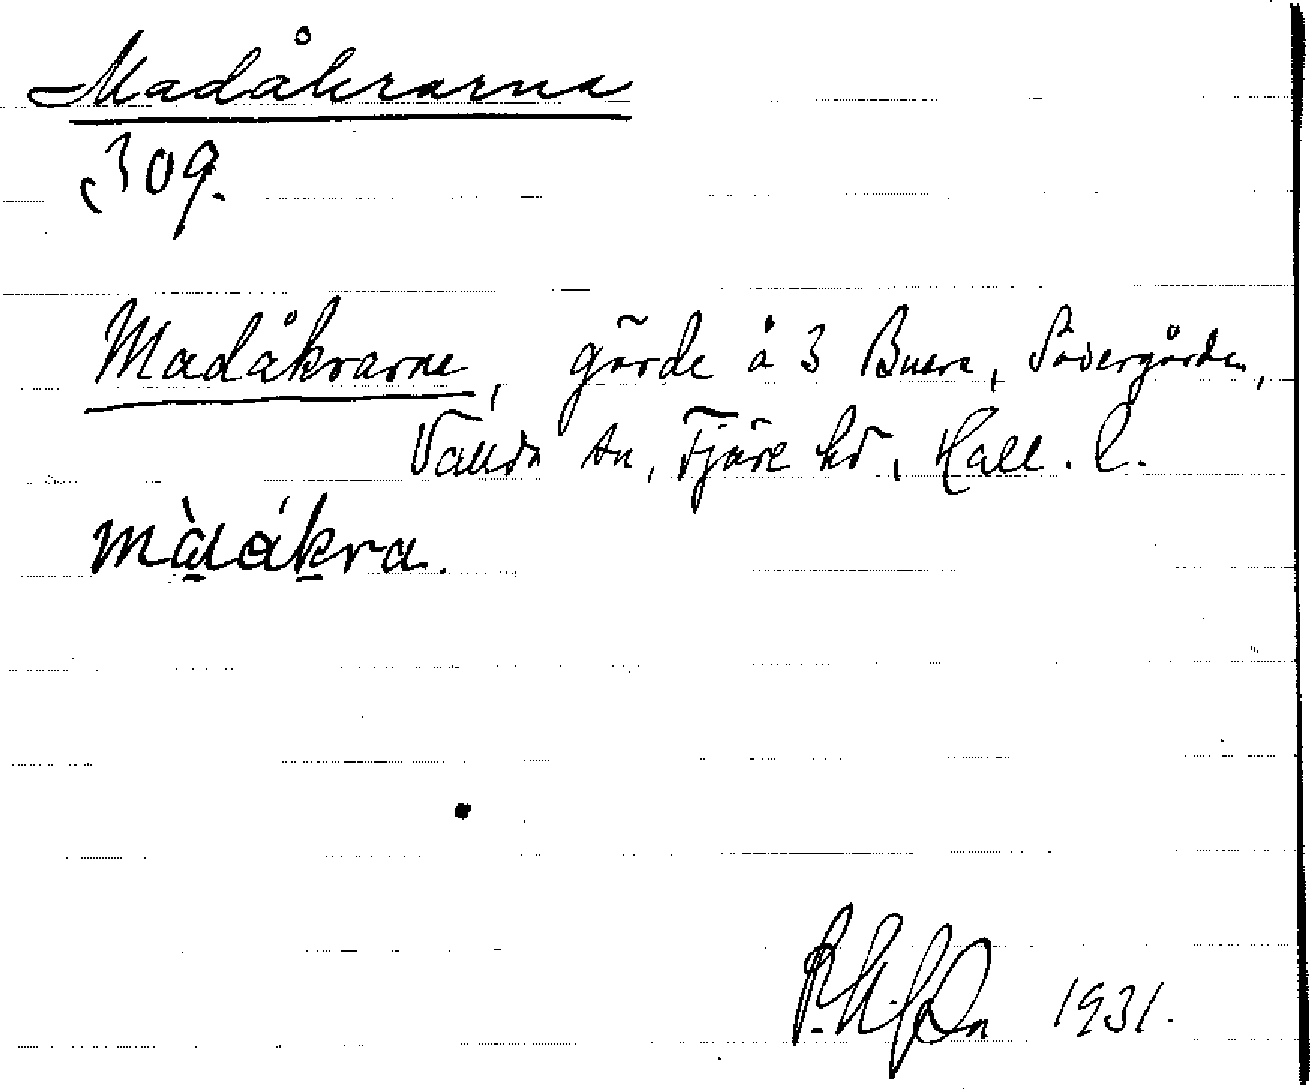 Madåkrarna
309.
Madåkrarne, gärde å 3 Buera, Södergården,
Vallda sn, Fjäre hd, Hall. l.
màdåkra.
1931.